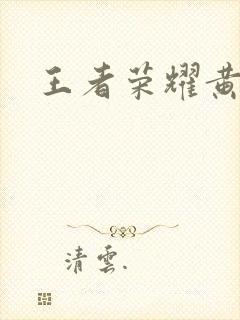 王者荣耀黄
清雲.